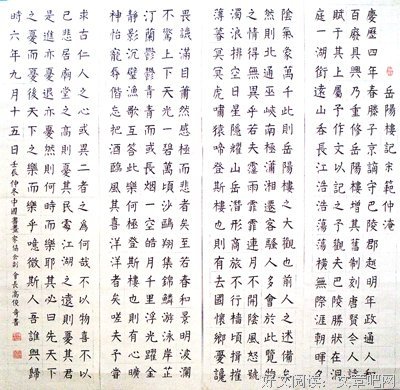 岳陽樓記 宋 范仲淹
慶歷四年春滕子京謫守巴陵郡越明年政通人和
百廢具興乃重修岳陽樓增其舊制刻唐賢今人詩
賦于其上屬予作文以記之予觀夫巴陵勝狀在洞
庭一湖銜遠山吞長江浩浩蕩蕩橫無際涯朝暉夕
陰氣象萬千此則岳陽樓之大觀也前人之述備矣
然則北通巫峽南極瀟湘遷客騷人多會於此覽物
之情得無異乎若夫霪雨霏霏連月不開陰風怒號
濁浪排空日星隱耀山岳潛形商旅不行檣傾楫摧
薄暮冥冥虎嘯猿啼登斯樓也則有去國懷鄉憂讒
畏譏滿目蕭然感極而悲者矣至若春和景明波瀾
不驚上下天光一碧萬頃沙鷗翔集錦鱗游泳岸芷
汀蘭鬱鬱青青而或長煙一空皓月千里浮光躍金
靜影沉璧漁歌互答此樂何極登斯樓也則有心曠
神怡寵辱偕忘把酒臨風其喜洋洋者矣嗟夫予嘗
求古仁人之心或異二者之為何哉不以物喜不以
己悲居廟堂之高則憂其民處江湖之遠則憂其君
是進亦憂退亦憂然則何時而樂耶其必曰先天下
之憂而憂後天下之樂而樂乎噫微斯人吾誰與歸
時六年九月十五日 壬辰仲冬中國書畫家協會副會長高俊奇書